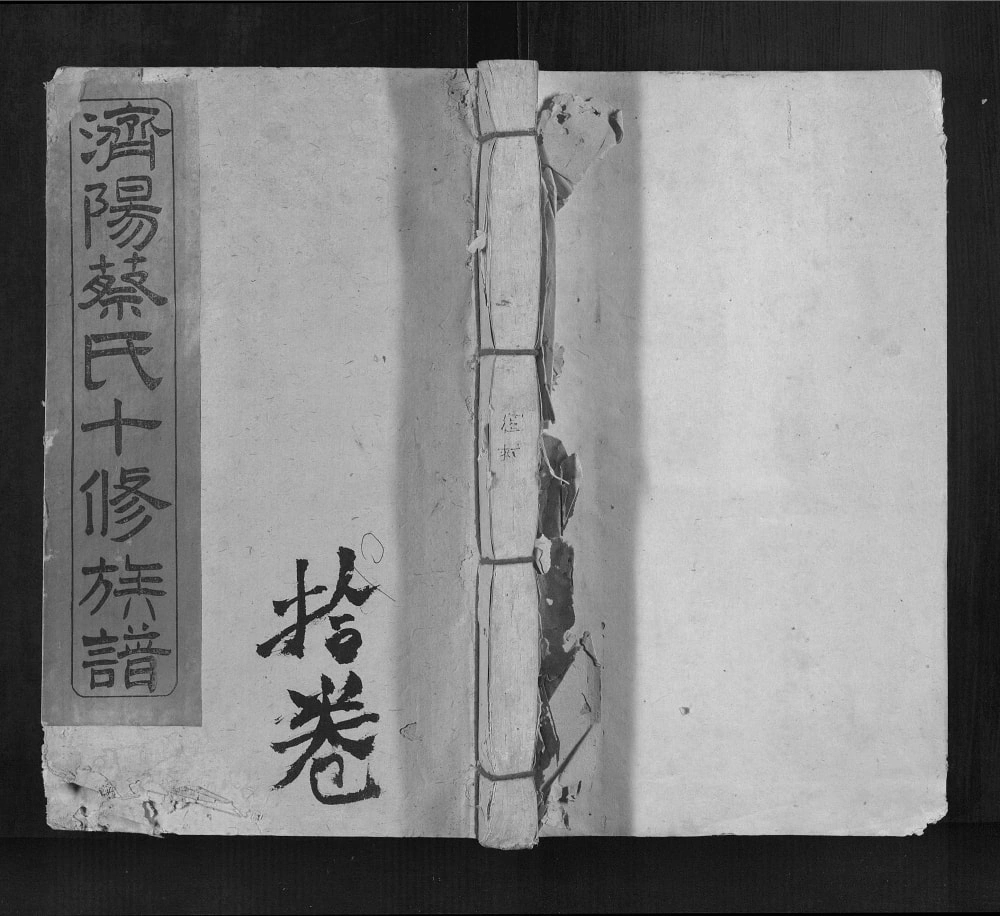 濟陽蔡氏十修族譜
拾卷